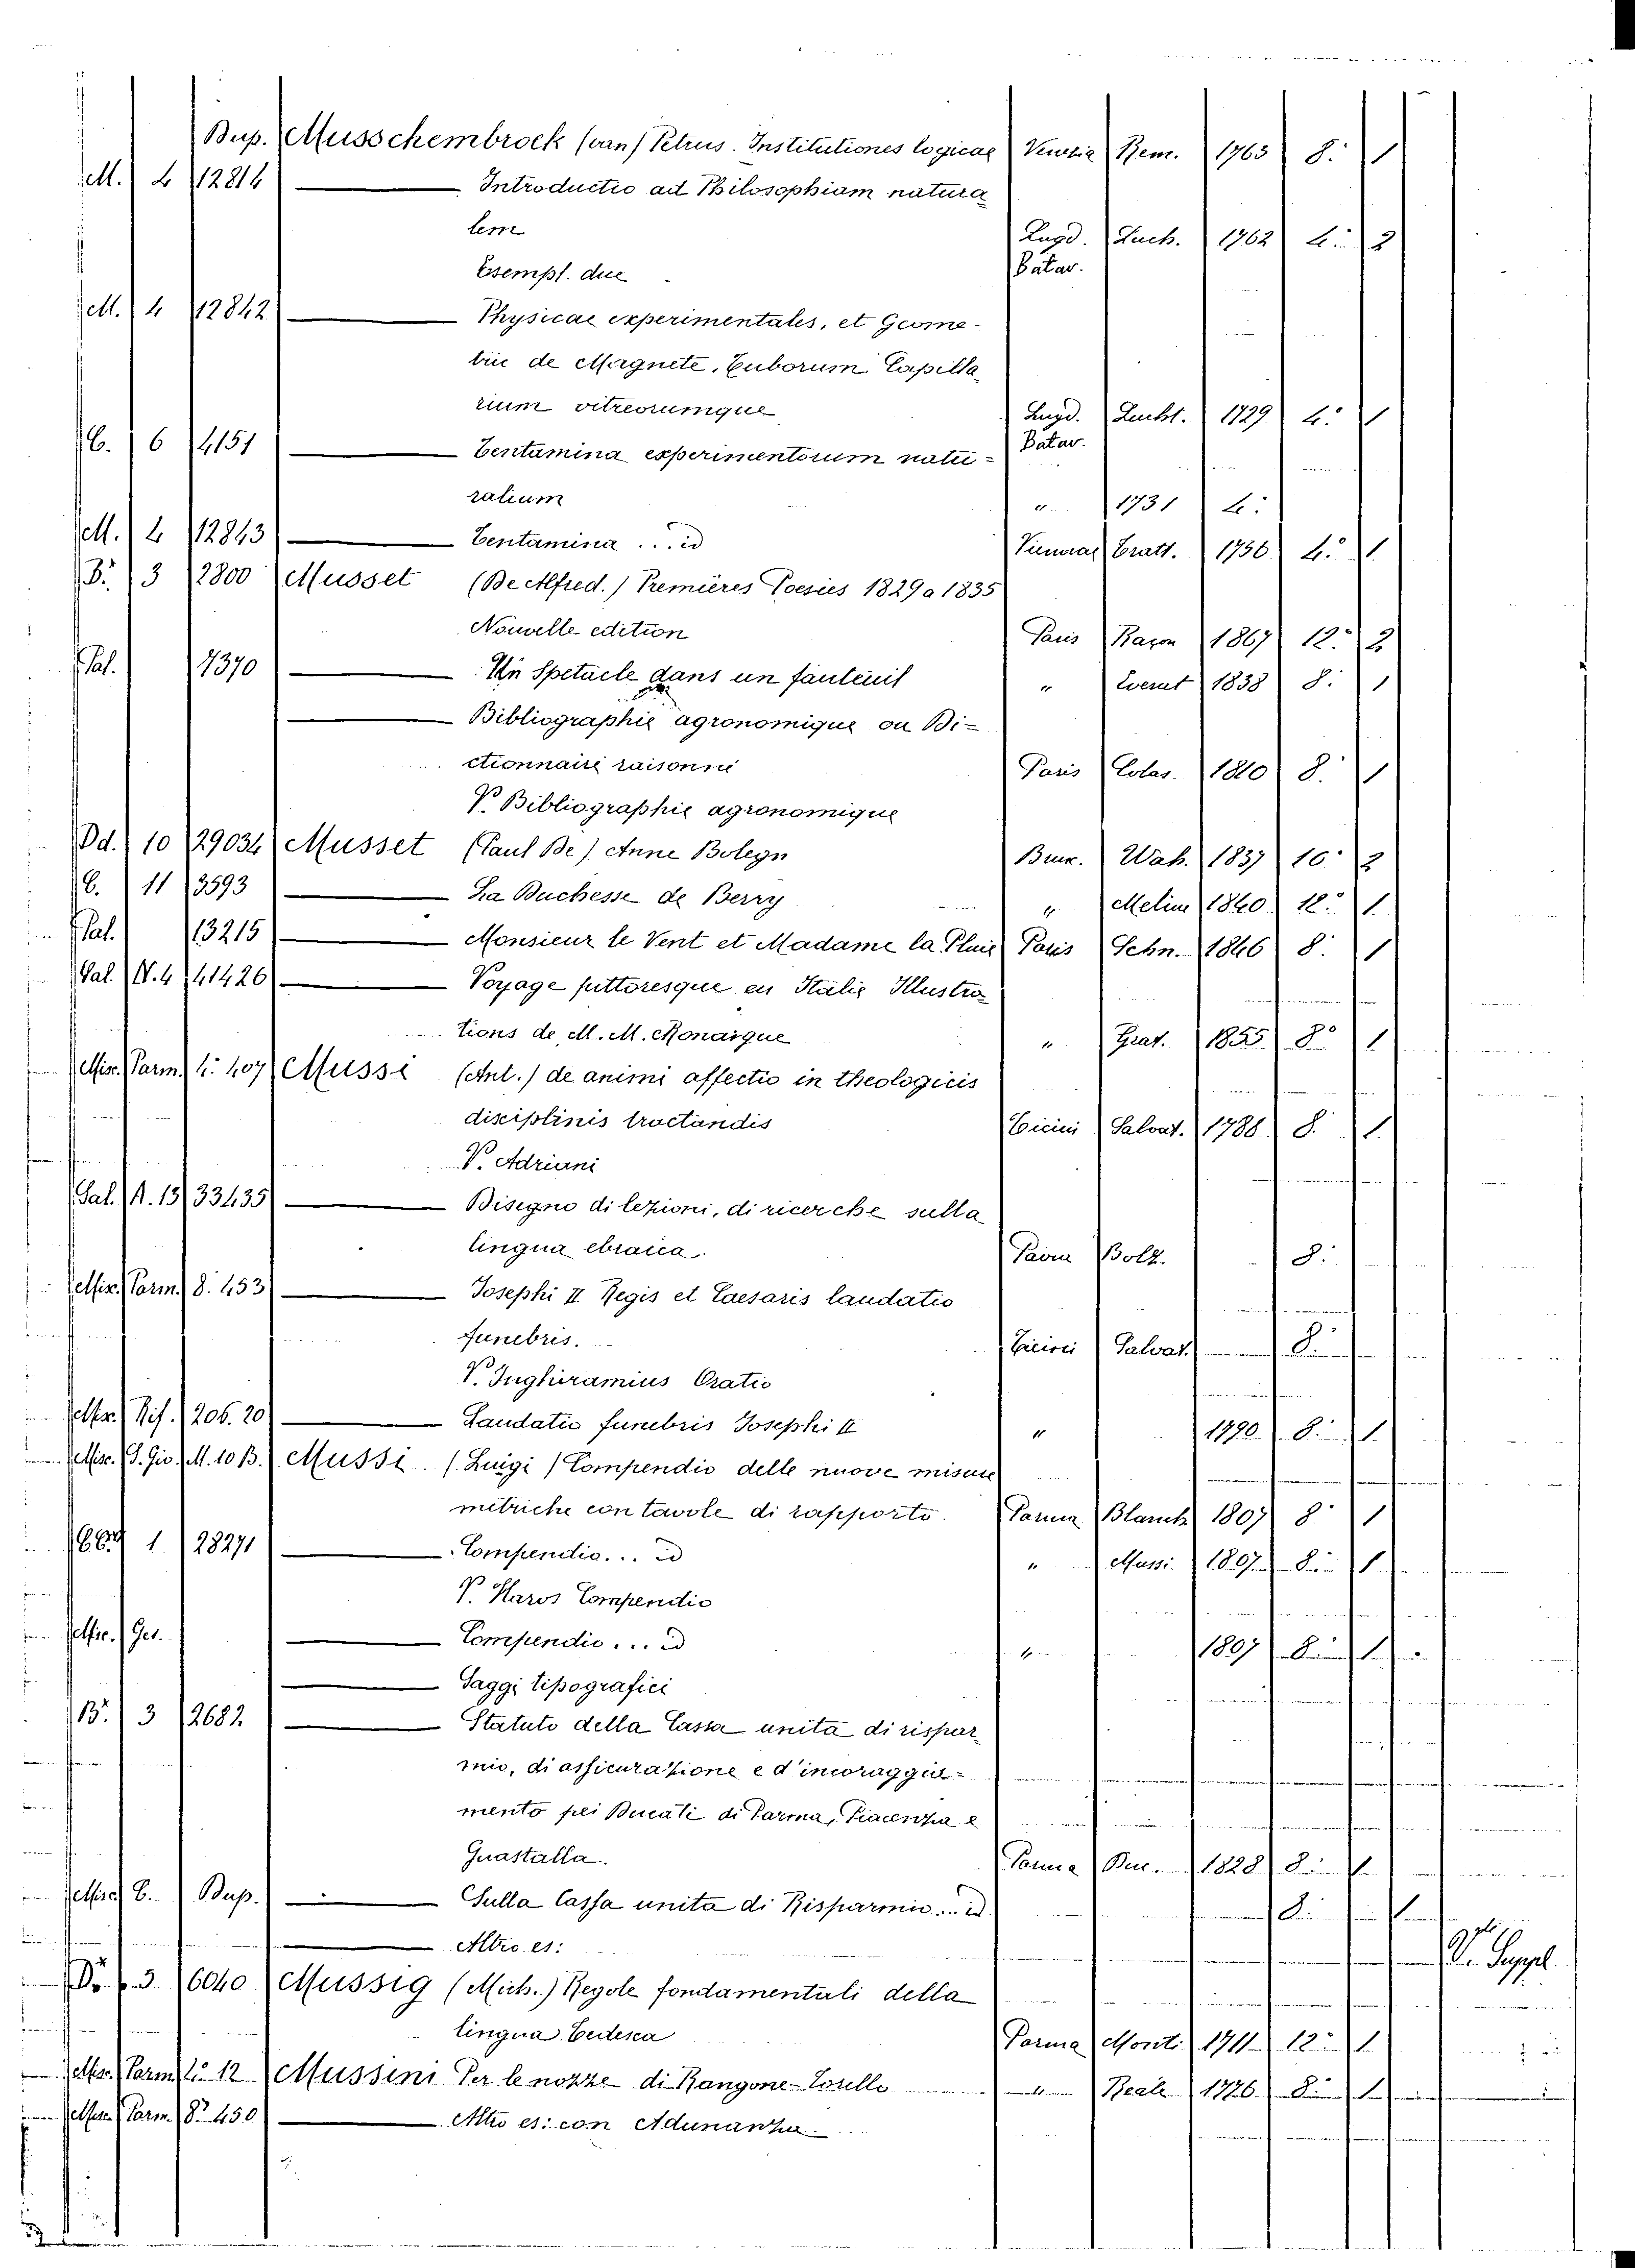 Dup. Musschembroek (van) Petrus. Institutiones logicae Venezia Rem. 1763 8. 1
M. 4 12814 Introductio ad Philosophiam natura
lem Lugd. Luch. 1762 4. 2
Esempl. due Batav.
M. 4 12842 Physicae experimentales, et Geome-
trie de Magnete, tuborum Capilla
rium vitreorumque Lugd. Lucht. 1729 4. 1
C. 6 4151 Tentamina experimentorum natu- Batav.
ralium " 1731 4.
M. 4 12843 Tentamina ... id Viennae Tratt. 1756 4. 1
B. 3 2800 Musset (De Alfred.) Premières Poesies 1829 a 1835
Nouvelle edition Paris Raçon 1867 12. 2
Pal. 7370 Un Spetacle dans un fauteuil " Everat 1838 8. 1
Bibliographie agronomique ou Di-
ctionnaire raisonné Paris Colas. 1810 8. 1
V. Bibliographie agronomique
Dd. 10 29034 Musset (Paul De). Anne Boleyn Brux. Wah. 1837 16. 2
C. 11 3593 La Duchesse de Berry " Meline 1840 12. 1
Pal. 13215 Monsieur le Vent et Madame la Pluie Paris Schn. 1846 8. 1
Pal. N. 4 41426 Voyage pittoresque en Italie Illustra
tions de M. M. Monaique " Grat. 1855 8. 1
Misc. Parm. 4. 407 Mussi (Ant.) de animi affectio in theologicis
disciplinis tractandis Ticini Salvat. 1788. 8. 1
V. Adriani
Pal. A. 13 33435 Disegno di lezioni, di ricerche sulla
lingua ebraica. Pavia Bolz. 8.
Misc. Parm. 8. 453 Josephi II Regis et Caesaris laudatio
funebris. Ticini Salvat. 8.
V. Inghiramius Oratio
Misc. Rif. 206. 20 Laudatio funebris Josephi II " 1790 8. 1.
Misc. S. Gio. M. 10 B. Mussi (Luigi) Compendio delle nuove misure
metriche con tavole di rapporto. Parma Blanch 1807 8. 1
1 28271 Compendio... id " Mussi 1807 8. 1
V. Haros Compendio
Misc. Ges. Compendio... id " 1807 8. 1.
Saggi tipografici
B. 3 2682 Statuto della Cassa unita di rispar
mio, di assicurazione ed incoraggia-
mento pei Ducati di Parma, Piacenza e
Guastalla. Parma Duc. 1828 8. 1.
Misc. C. Dup. Sulla Cassa unita di Risparmio... id. 8. 1
Altro es: V. Suppl.
D. 3. 6040 Mussig (Mich.) Regole fondamentali della
lingua Tedesca Parma Monti 1711 12. 1
Misc. Parm. 4. 12 Mussini Per le nozze di Rangone-Torello " Reale 1776 8. 1
Misc. Parm. 8. 450 Altro es: con Adunanza